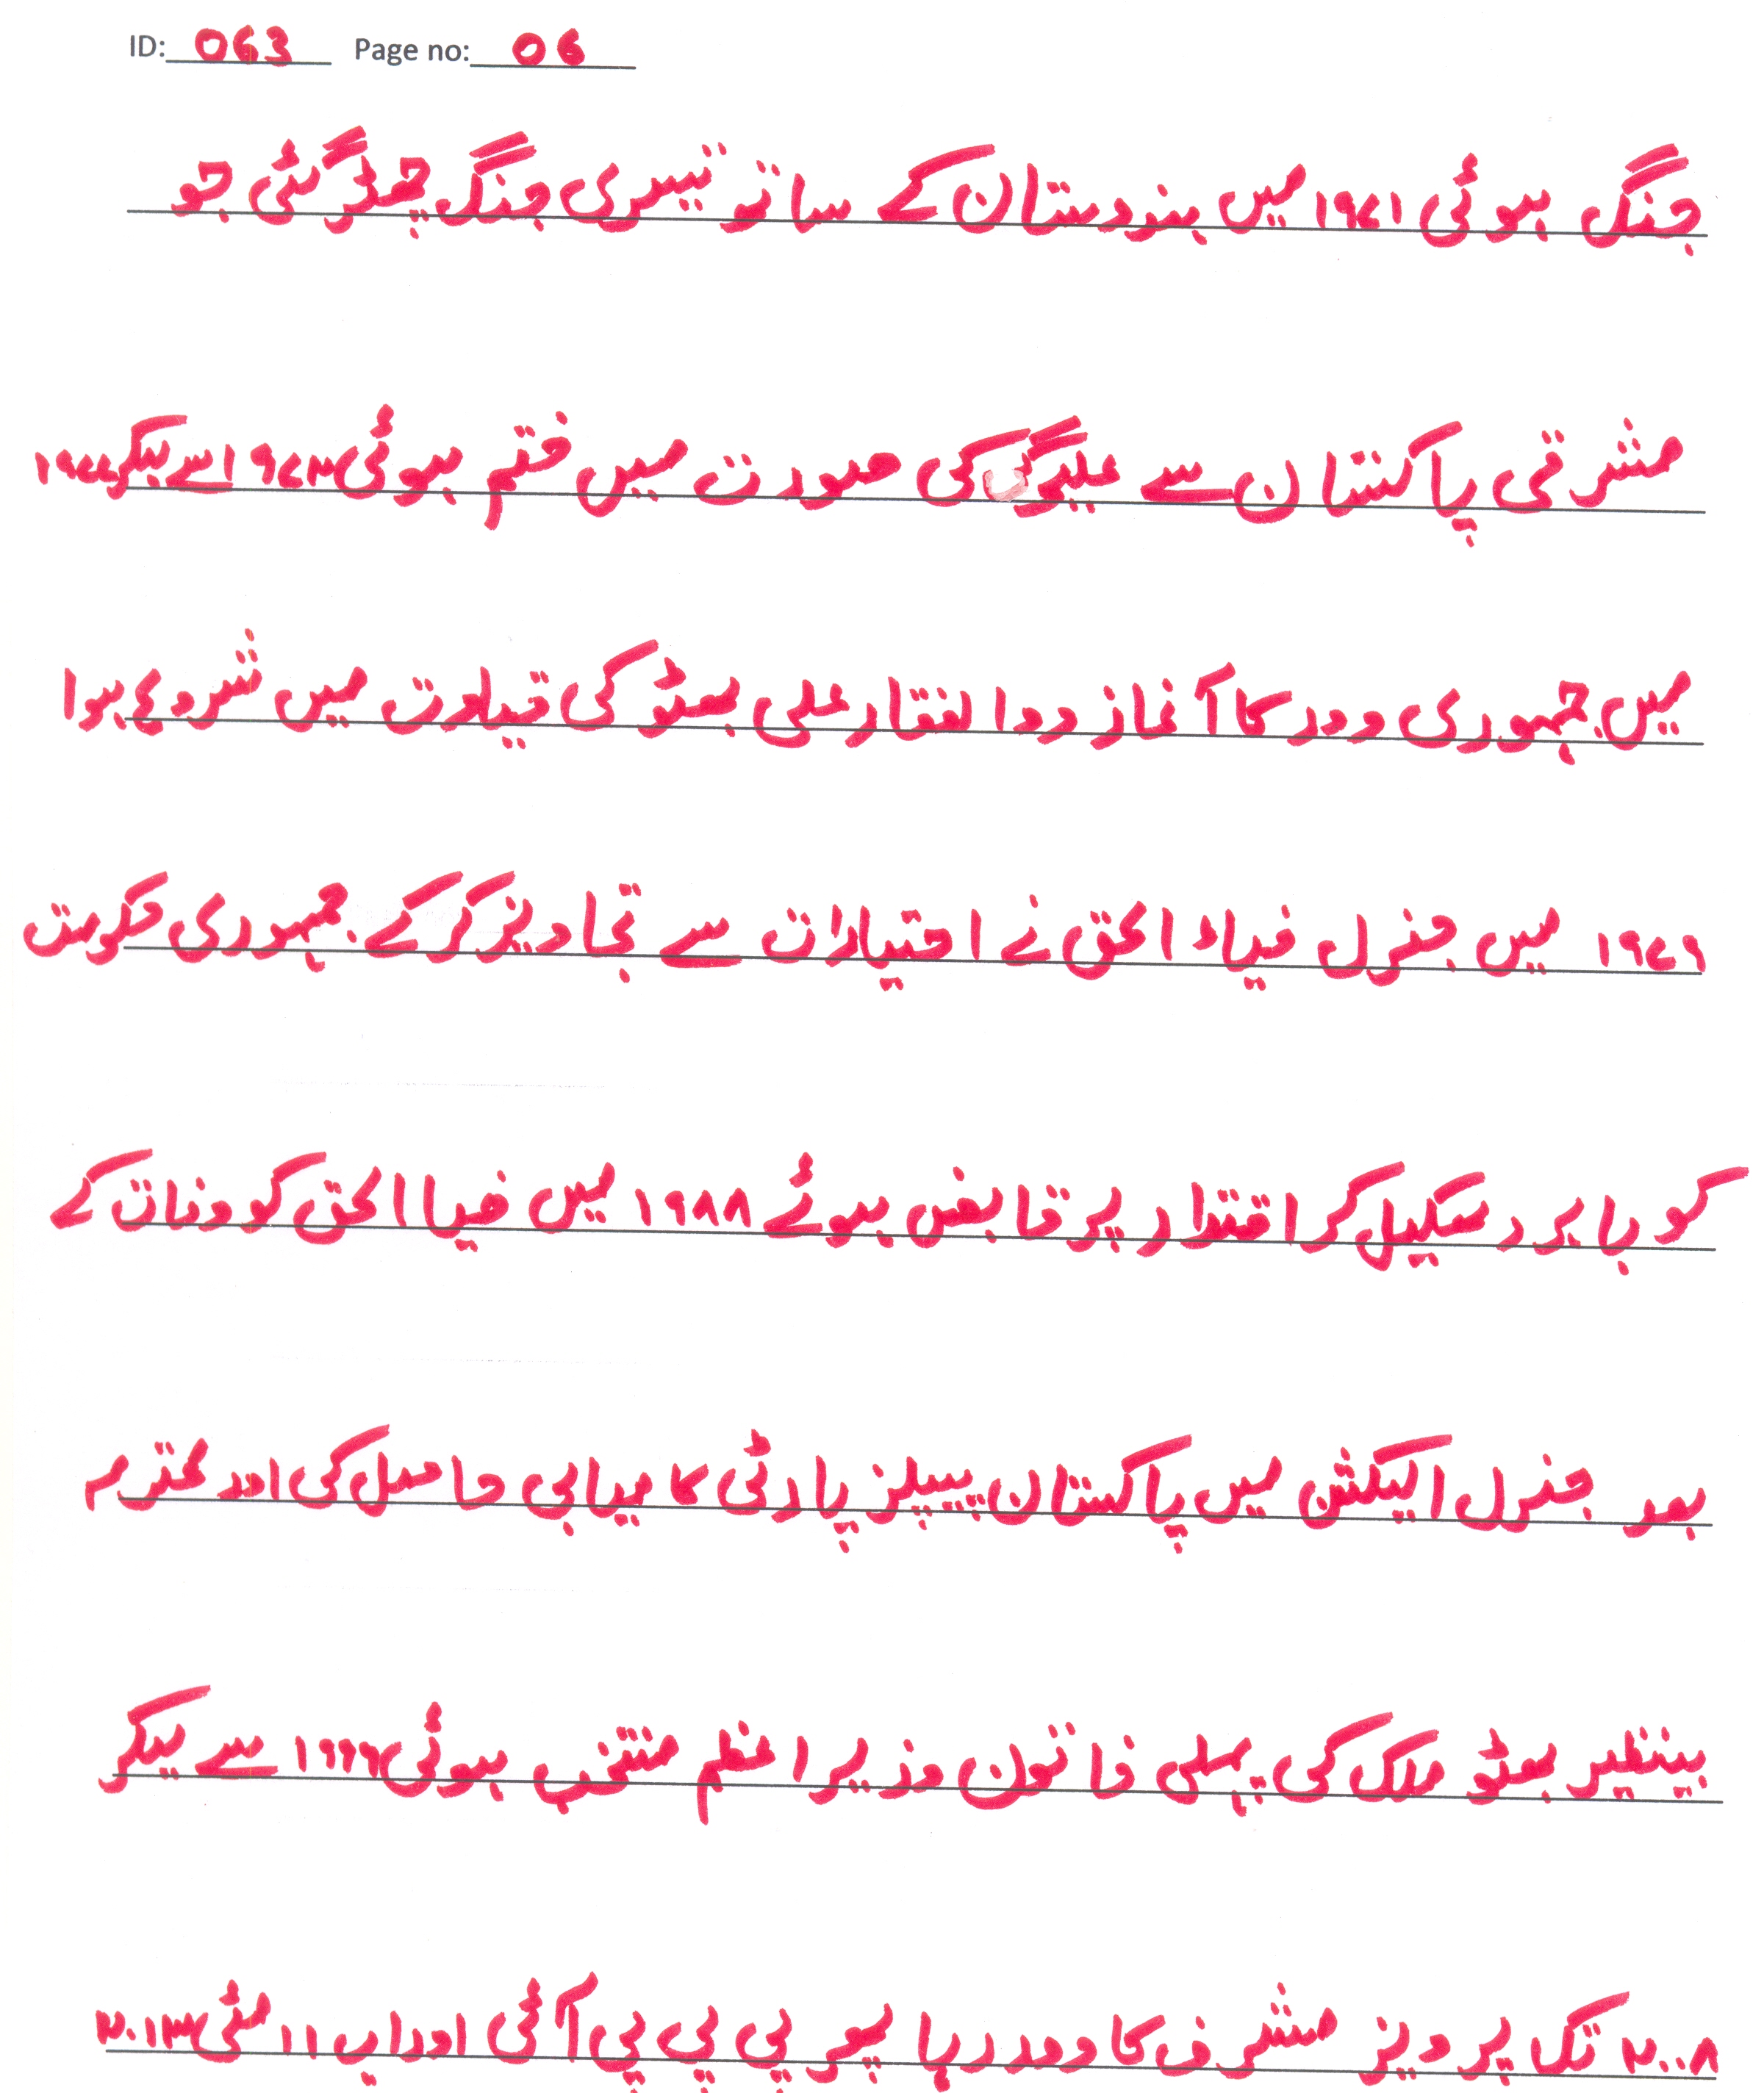 ID: 063 Page no: 06
جنگ ہوئی ۱۹۷۱ میں ہندوستان کے ساتھ تیسری جنگ چھڑ گئی جو
مشرقی پاکستان سے علیگی کی صورت میں ختم ہوئی ۱۹۷۳ سے لیکر ۱۹۷۷
میں جمہوری دور کا آغاز ذوالفقار علی بھٹو کی قیادت میں شروع ہوا
۱۹۷۹ میں جنرل ضیاء الحق نے اختیارات سے تجاویز کر کے جمہوری حکومت
کو بابر دسکیل کر اقتدار پر قابض ہوئے ۱۹۸۸ میں ضیا الحق کو وفات کے
بعد جنرل الیکشن میں پاکستان پیپلز پارٹی کامیابی حاصل کی اور محترم
بینظیر بھٹو ملک کی پہلی خاتون وزیر اعظم منتخب ہوئی ۱۹۹۹ سے لیکر
۲۰۰۸ تک پرویز مشرف کا دور رہا پھر پی پی پی آئی اور اب ۱۱ مئی ۲۰۱۳